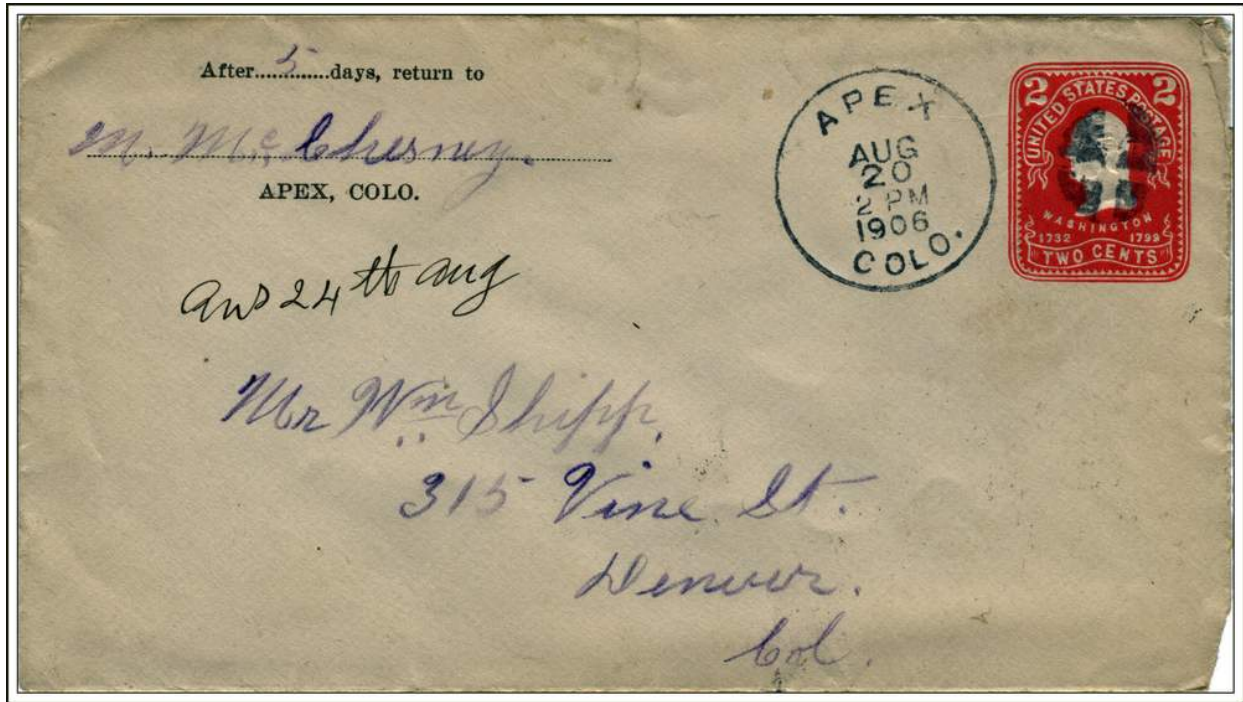 After 5 days, return to
M. McChesney.
APEX, COLO.
APEX
AUG
20
2 PM
1906
COLO.
2 2
UNITED STATES POSTAGE
WASHINGTON
1732 1799
TWO CENTS
ans 24th aug
Mr Wm Shipp,
315 Vine St.
Denver.
Col.